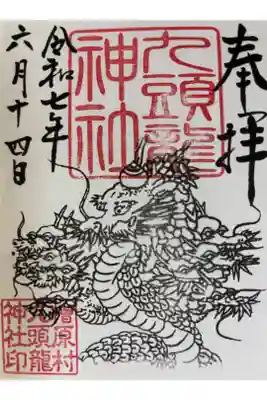 奉拝
九頭龍
神社
令和七年
六月十四日
檜原村
九頭龍
神社印